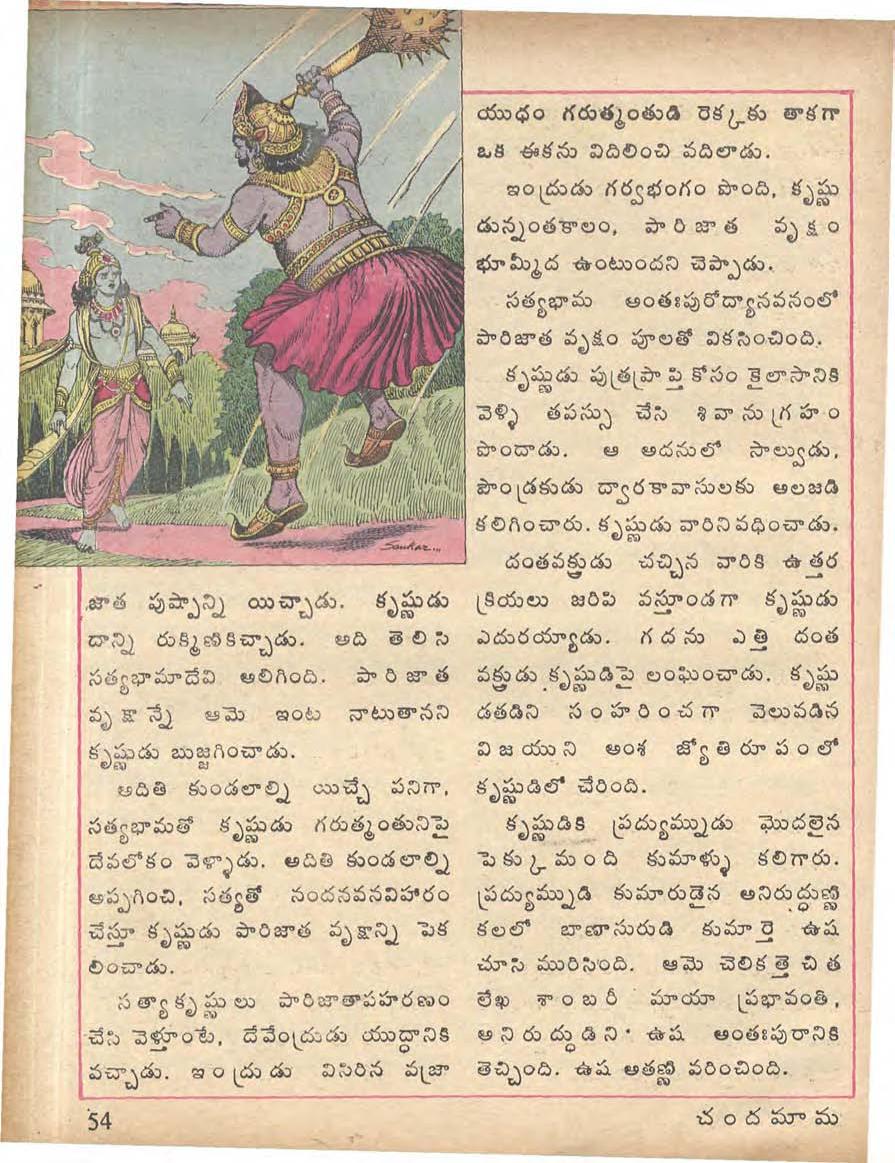 Sankar...
జాత పుష్పాన్ని యిచ్చాడు. కృష్ణుడు
దాన్ని రుక్మిణికిచ్చాడు. అది తెలిసి
సత్యభామాదేవి అలిగింది. పారిజాత
వృక్షాన్నే ఆమె ఇంట నాటుతానని
కృష్ణుడు బుజ్జగించాడు.
అదితి కుండలాల్ని యిచ్చే పనిగా,
సత్యభామతో కృష్ణుడు గరుత్మంతునిపై
దేవలోకం వెళ్ళాడు. అదితి కుండలాల్ని
అప్పగించి, సత్యతో నందనవనవిహారం
చేస్తూ కృష్ణుడు పారిజాత వృక్షాన్ని పెక
లించాడు.
సత్యాకృష్ణులు పారిజాతాపహరణం
చేసి వెళ్తూంటే, దేవేంద్రుడు యుద్ధానికి
వచ్చాడు. ఇంద్రుడు విసిరిన వజ్రా
యుధం గరుత్మంతుడి రెక్కకు తాకగా
ఒక ఈకను విదిలించి వదిలాడు.
ఇంద్రుడు గర్వభంగం పొంది, కృష్ణు
డున్నంతకాలం, పారిజాత వృక్షం
భూమ్మీద ఉంటుందని చెప్పాడు.
సత్యభామ అంతఃపురోద్యానవనంలో
పారిజాత వృక్షం పూలతో వికసించింది.
కృష్ణుడు పుత్రప్రాప్తి కోసం కైలాసానికి
వెళ్ళి తపస్సు చేసి శివానుగ్రహం
పొందాడు. ఆ అదనులో సాల్వుడు,
పౌండ్రకుడు ద్వారకావాసులకు అలజడి
కలిగించారు. కృష్ణుడు వారిని వధించాడు.
దంతవక్త్రుడు చచ్చిన వారికి ఉత్తర
క్రియలు జరిపి వస్తూండగా కృష్ణుడు
ఎదురయ్యాడు. గదను ఎత్తి దంత
వక్త్రుడు కృష్ణుడిపై లంఘించాడు. కృష్ణు
డతడిని సంహరించగా వెలువడిన
విజయుని అంశ జ్యోతిరూపంలో
కృష్ణుడిలో చేరింది.
కృష్ణుడికి ప్రద్యుమ్నుడు మొదలైన
పెక్కుమంది కుమాళ్ళు కలిగారు.
ప్రద్యుమ్నుడి కుమారుడైన అనిరుద్ధుణ్ణి
కలలో బాణాసురుడి కుమార్తె ఉష
చూసి మురిసింది. ఆమె చెలికత్తె చిత
లేఖ శాంబరీ మాయా ప్రభావంతి,
అనిరుద్ధుడిని ఉష అంతఃపురానికి
తెచ్చింది. ఉష అతణ్ణి వరించింది.
54
చందమామ